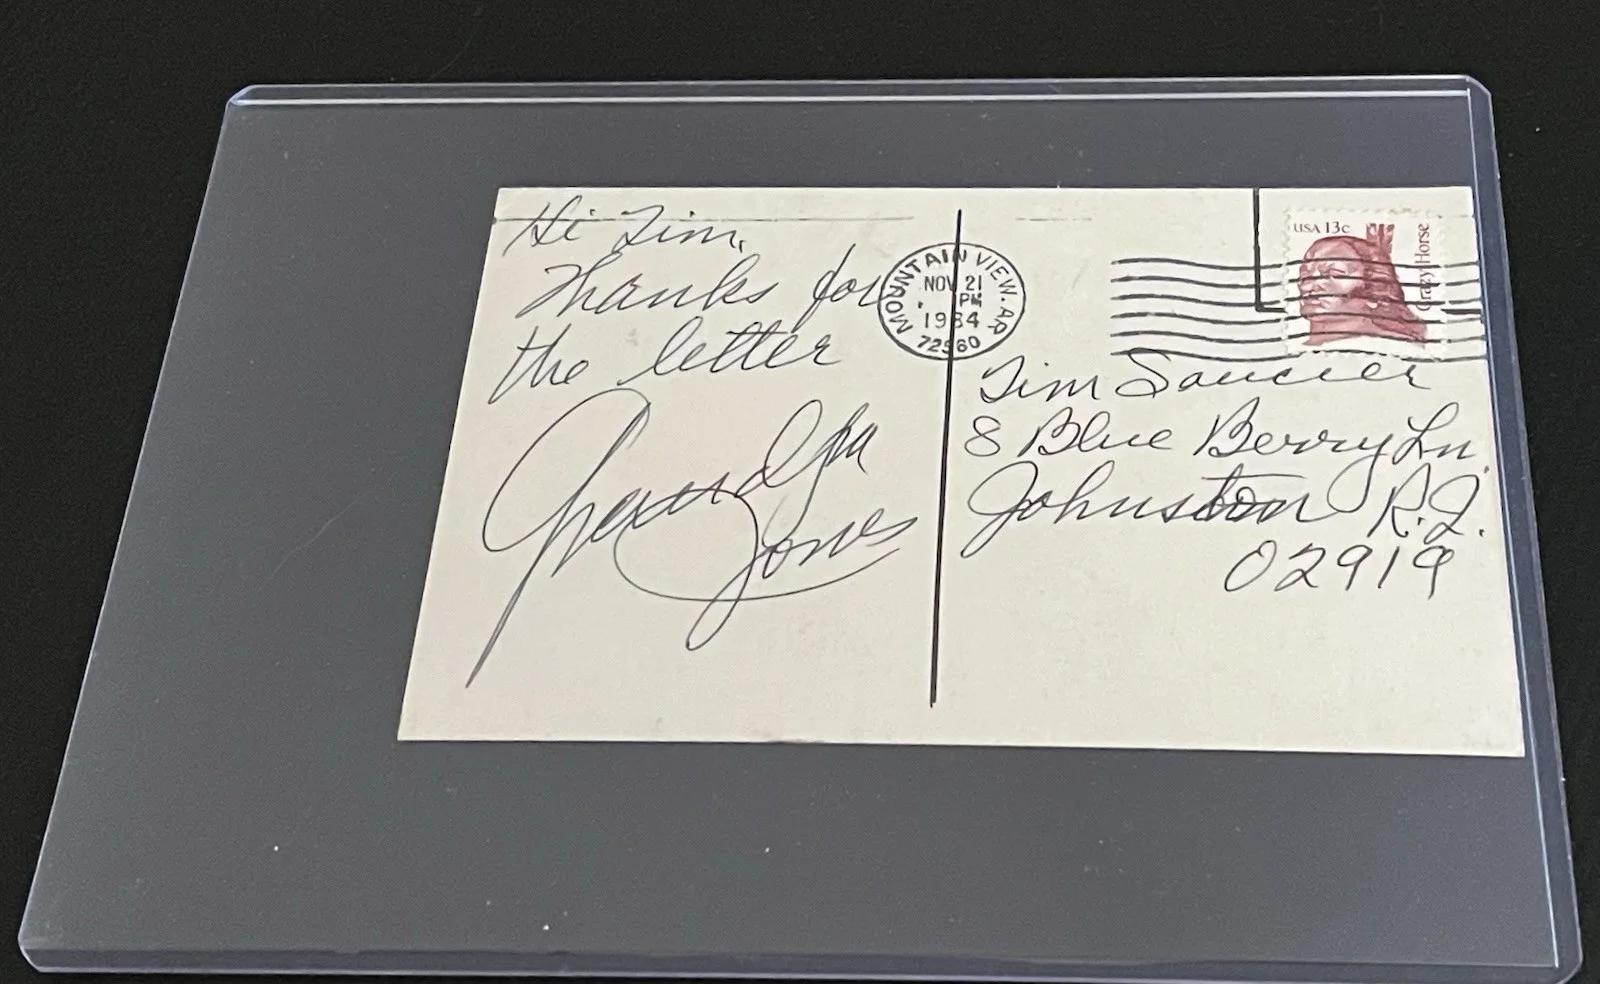 Hi Tim,
Thanks for
the letter
Grandpa
Jones
MOUNTAIN VIEW, AR
NOV 21
PM
1984
72560
USA 13c
Crazy Horse
Tim Saucier
8 Blue Berry Ln.
Johnston R.I.
02919